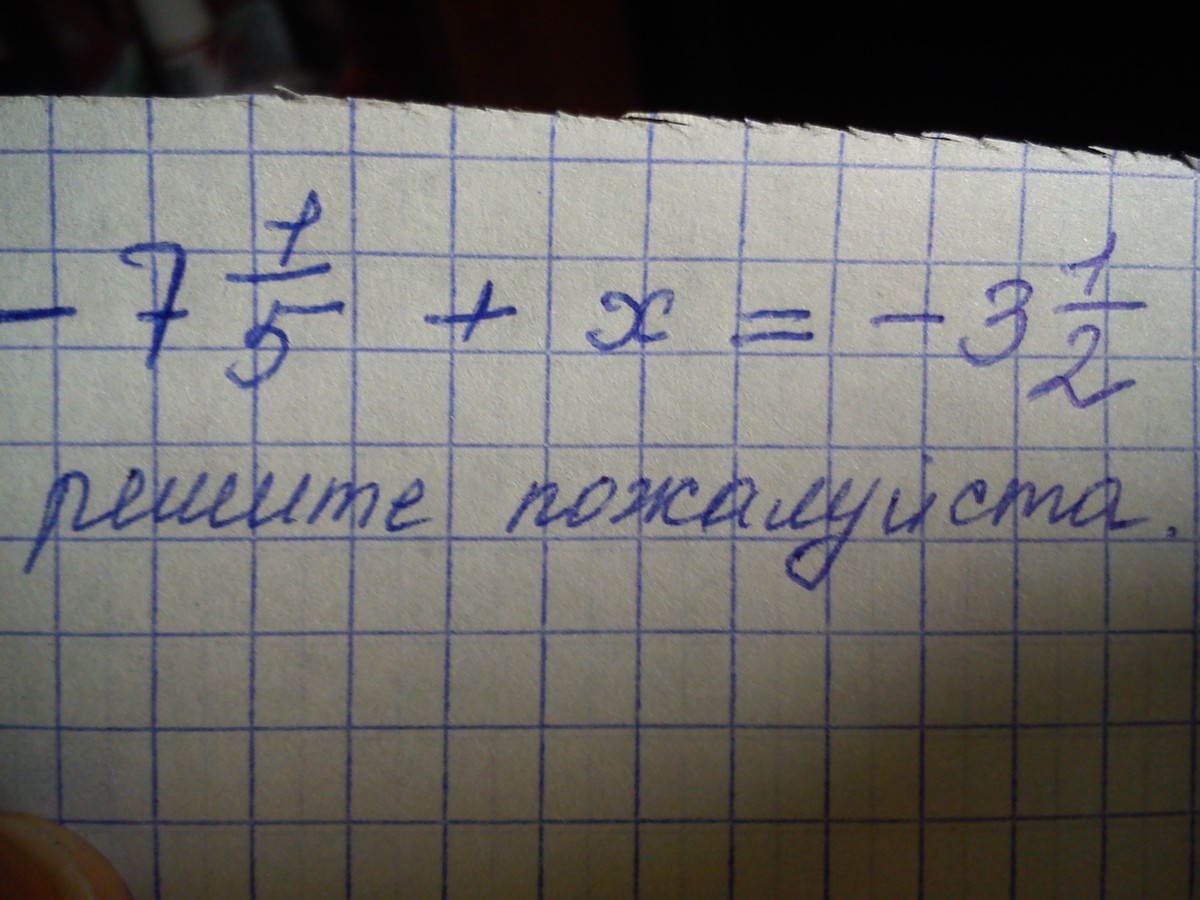 - 7 1/5 + x = - 3 1/2
решите пожалуйста.